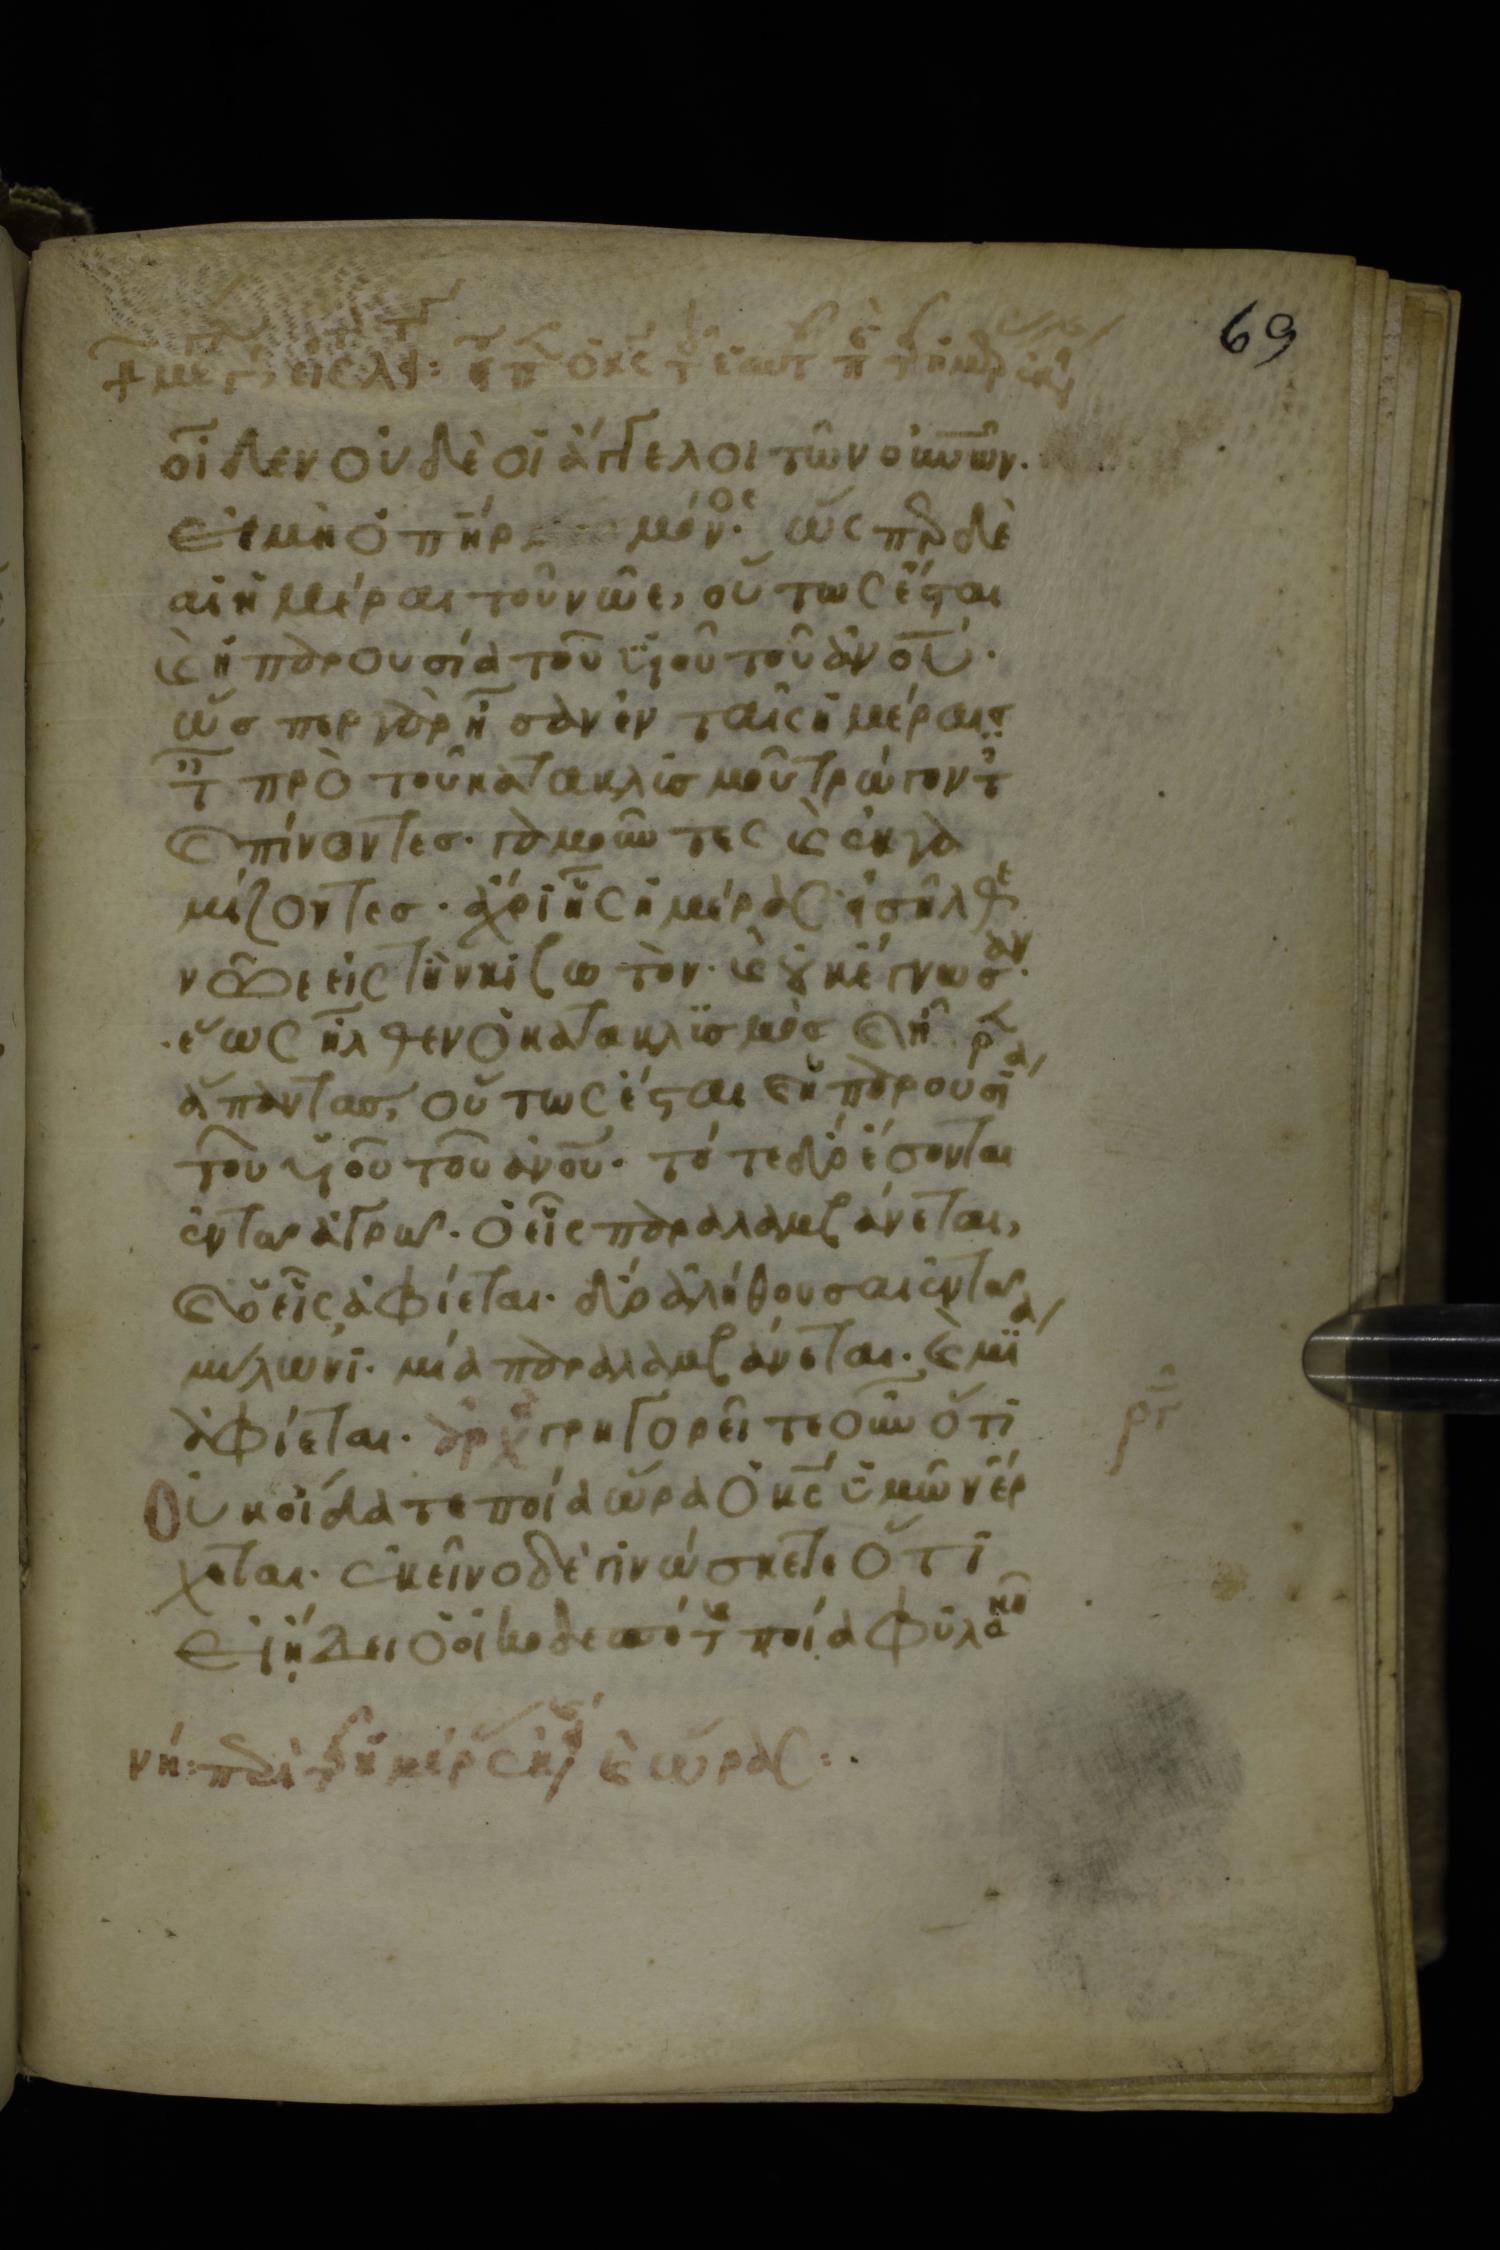 69
οἶδεν οὐδὲ οἱ ἄγγελοι τῶν οὐνῶν.
εἰ μὴ ὁ πηρ μόνος. ὥσπερ δὲ
αἱ ἡμέραι τοῦ νῶε, οὕτως ἔσται
καὶ ἡ παρουσία τοῦ υἱοῦ τοῦ ἀνου.
ὥσπερ γὰρ ἦσαν ἐν ταῖς ἡμέραις
τ πρὸ τοῦ κατακλισμοῦ τρώγοντ
καὶ πίνοντες. γαμοῦντες καὶ ἐκγα
μίζοντες. ἄχρι ἧς ἡμέρας εἰσῆλθε
νῶε εἰς τὴν κιβωτόν. καὶ οὐκ ἔγνωσαν.
ἕως ἦλθεν ὁ κατακλϊσμὸς καὶ ἦρ
ἅπαντας, οὕτως ἔσται καὶ ἡ παρουσία
τοῦ υἱοῦ τοῦ ἀνου. τότε δύο ἔσονται
ἐν τῶ ἀγρῶ. ὁ εἷς παραλαμβάνεται,
καὶ ὁ εἷς ἀφίεται. δύο ἀλήθουσαι ἐν τῶ
μύλωνι. μία παραλαμβάνεται. καὶ μϊα
ἀφίεται. ἀρχ γρηγορεῖτε οὖν ὅτι
οὐκ οἴδατε ποία ὥρα ὁ κς ὑμῶν ἔρ
χεται. ἐκεῖνο δὲ γινώσκετε ὅτι
εἰ ἤδει ὁ οἰκοδεσπότ ποία φυλακῆ
ρπ
νή: περὶ τ ἡμέρ ἐκ καὶ ὥρας:.